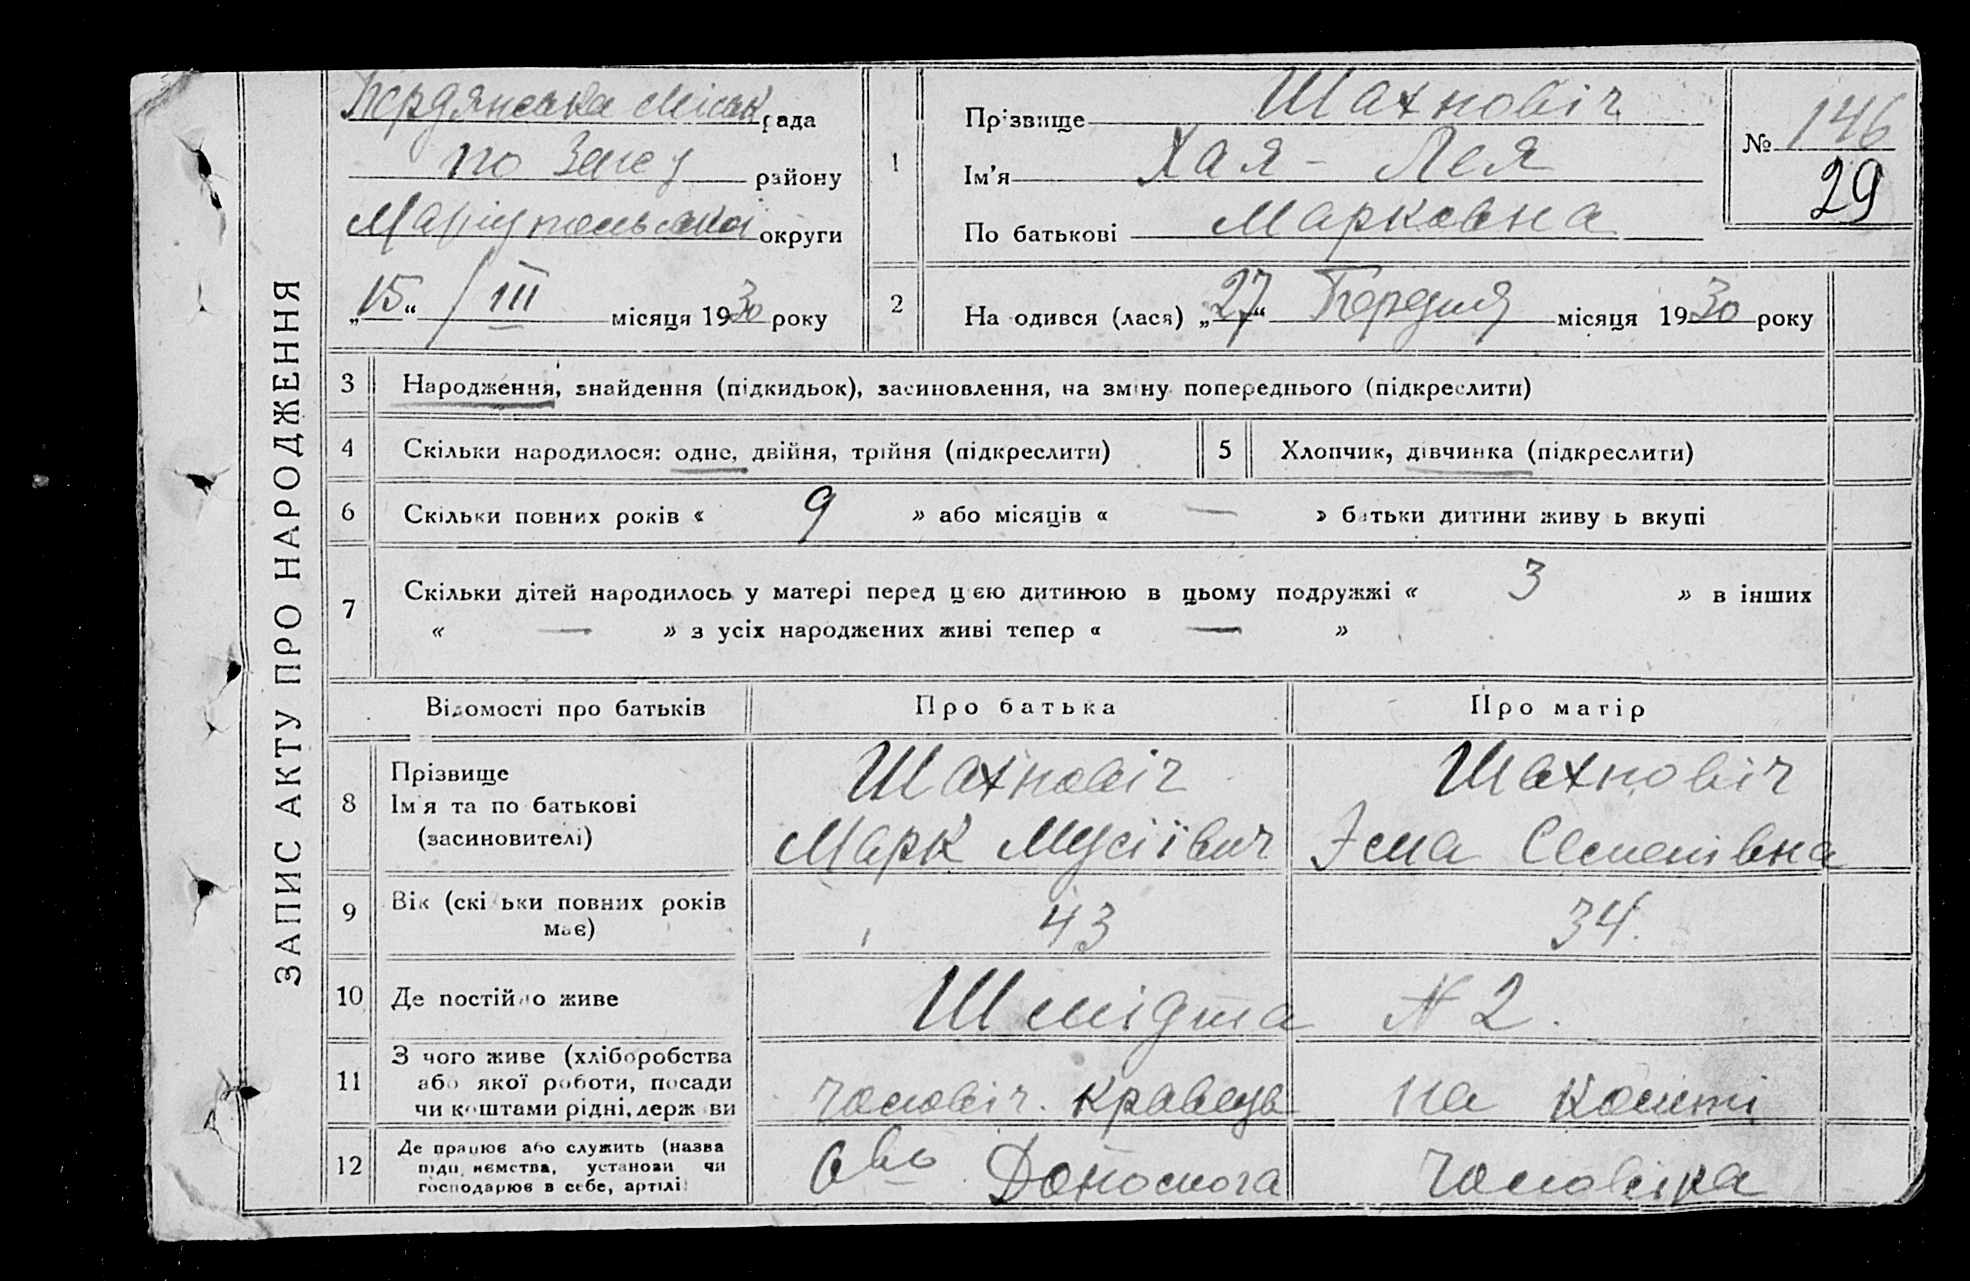 ЗАПИС АКТУ ПРО НАРОДЖЕННЯ
Бердянська Міськ рада
по Загсу району
Маріупольської округи
„15“ / III місяця 1930 року
1
Прізвище Шахновіч
Ім'я Хая - Лея
По батькові Марковна
№ 146
29
2 На одився (лася) „27“ Березня місяця 1930 року
3 Народження, знайдення (підкидьок), засиновлення, на зміну попереднього (підкреслити)
4 Скільки народилося: одне, двійня, трійня (підкреслити)
5 Хлопчик, дівчинка (підкреслити)
6 Скільки повних років « 9 » або місяців « — » батьки дитини живу ь вкупі
7 Скільки дітей народилось у матері перед цією дитиною в цьому подружжі « 3 » в інших
« — » з усіх народжених живі тепер « — »
Відомості про батьків Про батька Про матір
8 Прізвище
Ім'я та по батькові
(засиновителі)
Шахновіч
Марк Мусіївич
Шахновіч
Эма Семенівна
9 Вік (скі ьки повних років
має)
43
34.
10 Де постійно живе Шмідта N 2.
11 З чого живе (хліборобства
або якої роботи, посади
чи коштами рідні, держ ви
чоловіч. кравець
на кошті
12 Де працює або служить (назва
підп иємства, установи чи
господарює в себе, артілі
Допомога
чоловіка